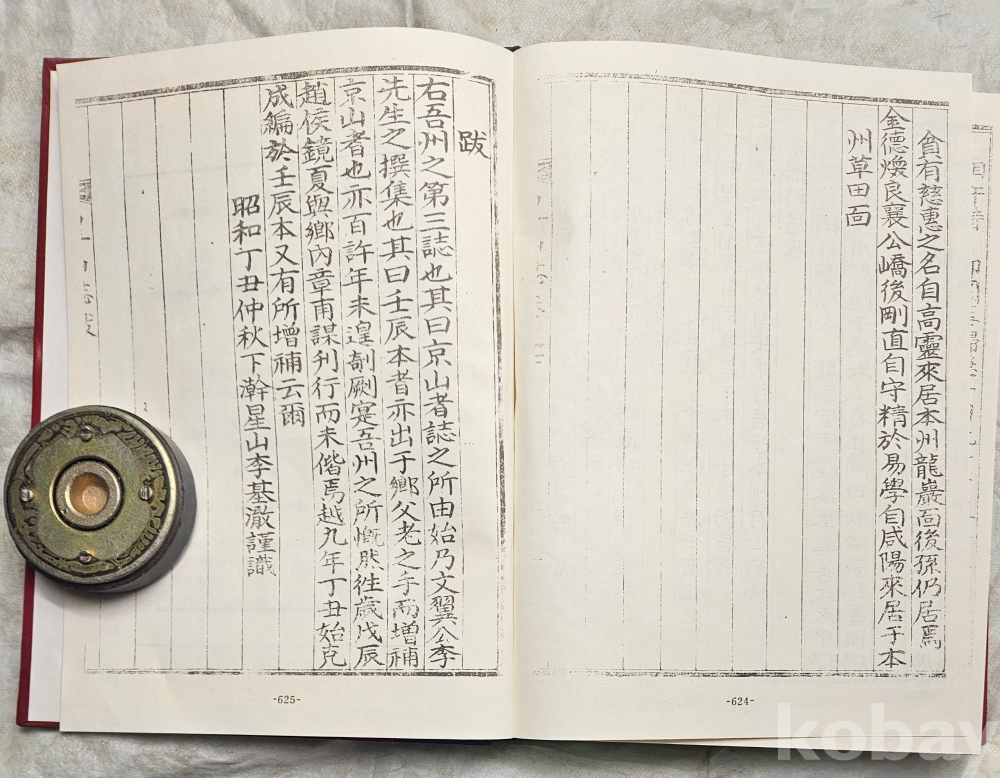 貟有慈惠之名自高靈來居本州龍巖面後孫仍居焉
金德煥良襄公嶠後剛直自守精於易學自咸陽來居于本
州草田面
-624-
跋
右吾州之第三誌也其曰京山者誌之所由始乃文翼公李
先生之撰集也其曰壬辰本者亦出于鄕父老之手而增補
京山者也亦百許年未遑剞劂寔吾州之所慨然徃歲戊辰
趙侯鏡夏與鄕內章甫謀刋行而未偕焉越九年丁丑始克
成編於壬辰本又有所增補云爾
昭和丁丑仲秋下澣星山李基澈謹識
-625-
kobay